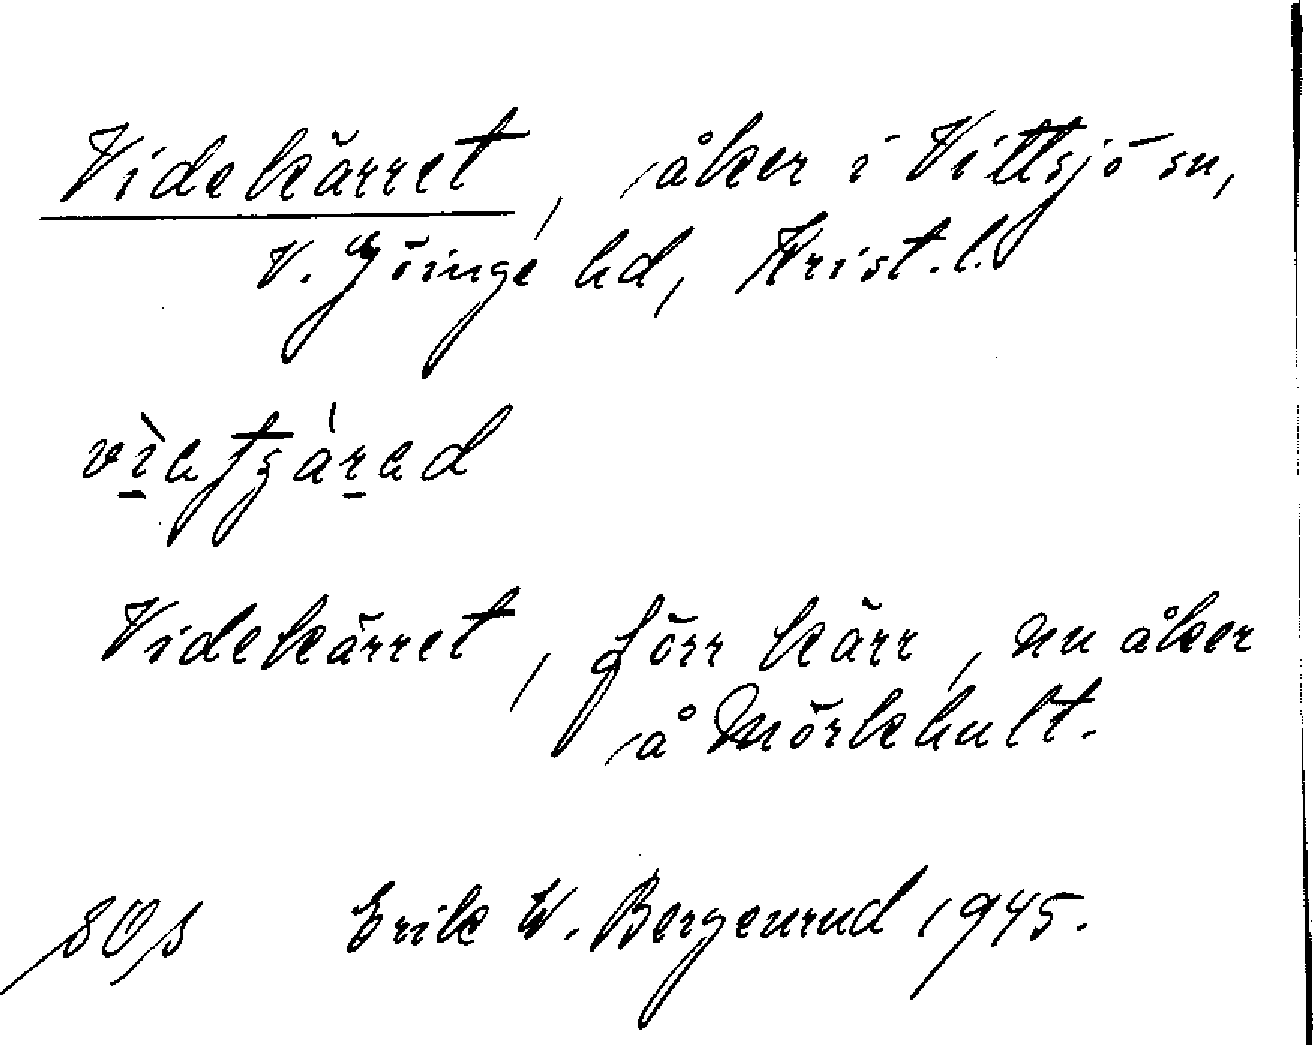 Videkärret, åker i Vittsjö sn,
V. Göinge hd, Krist. l.
Videkärret, förr kärr, nu åker
å Mörkhult.
Erik W. Bergenrud 1945.